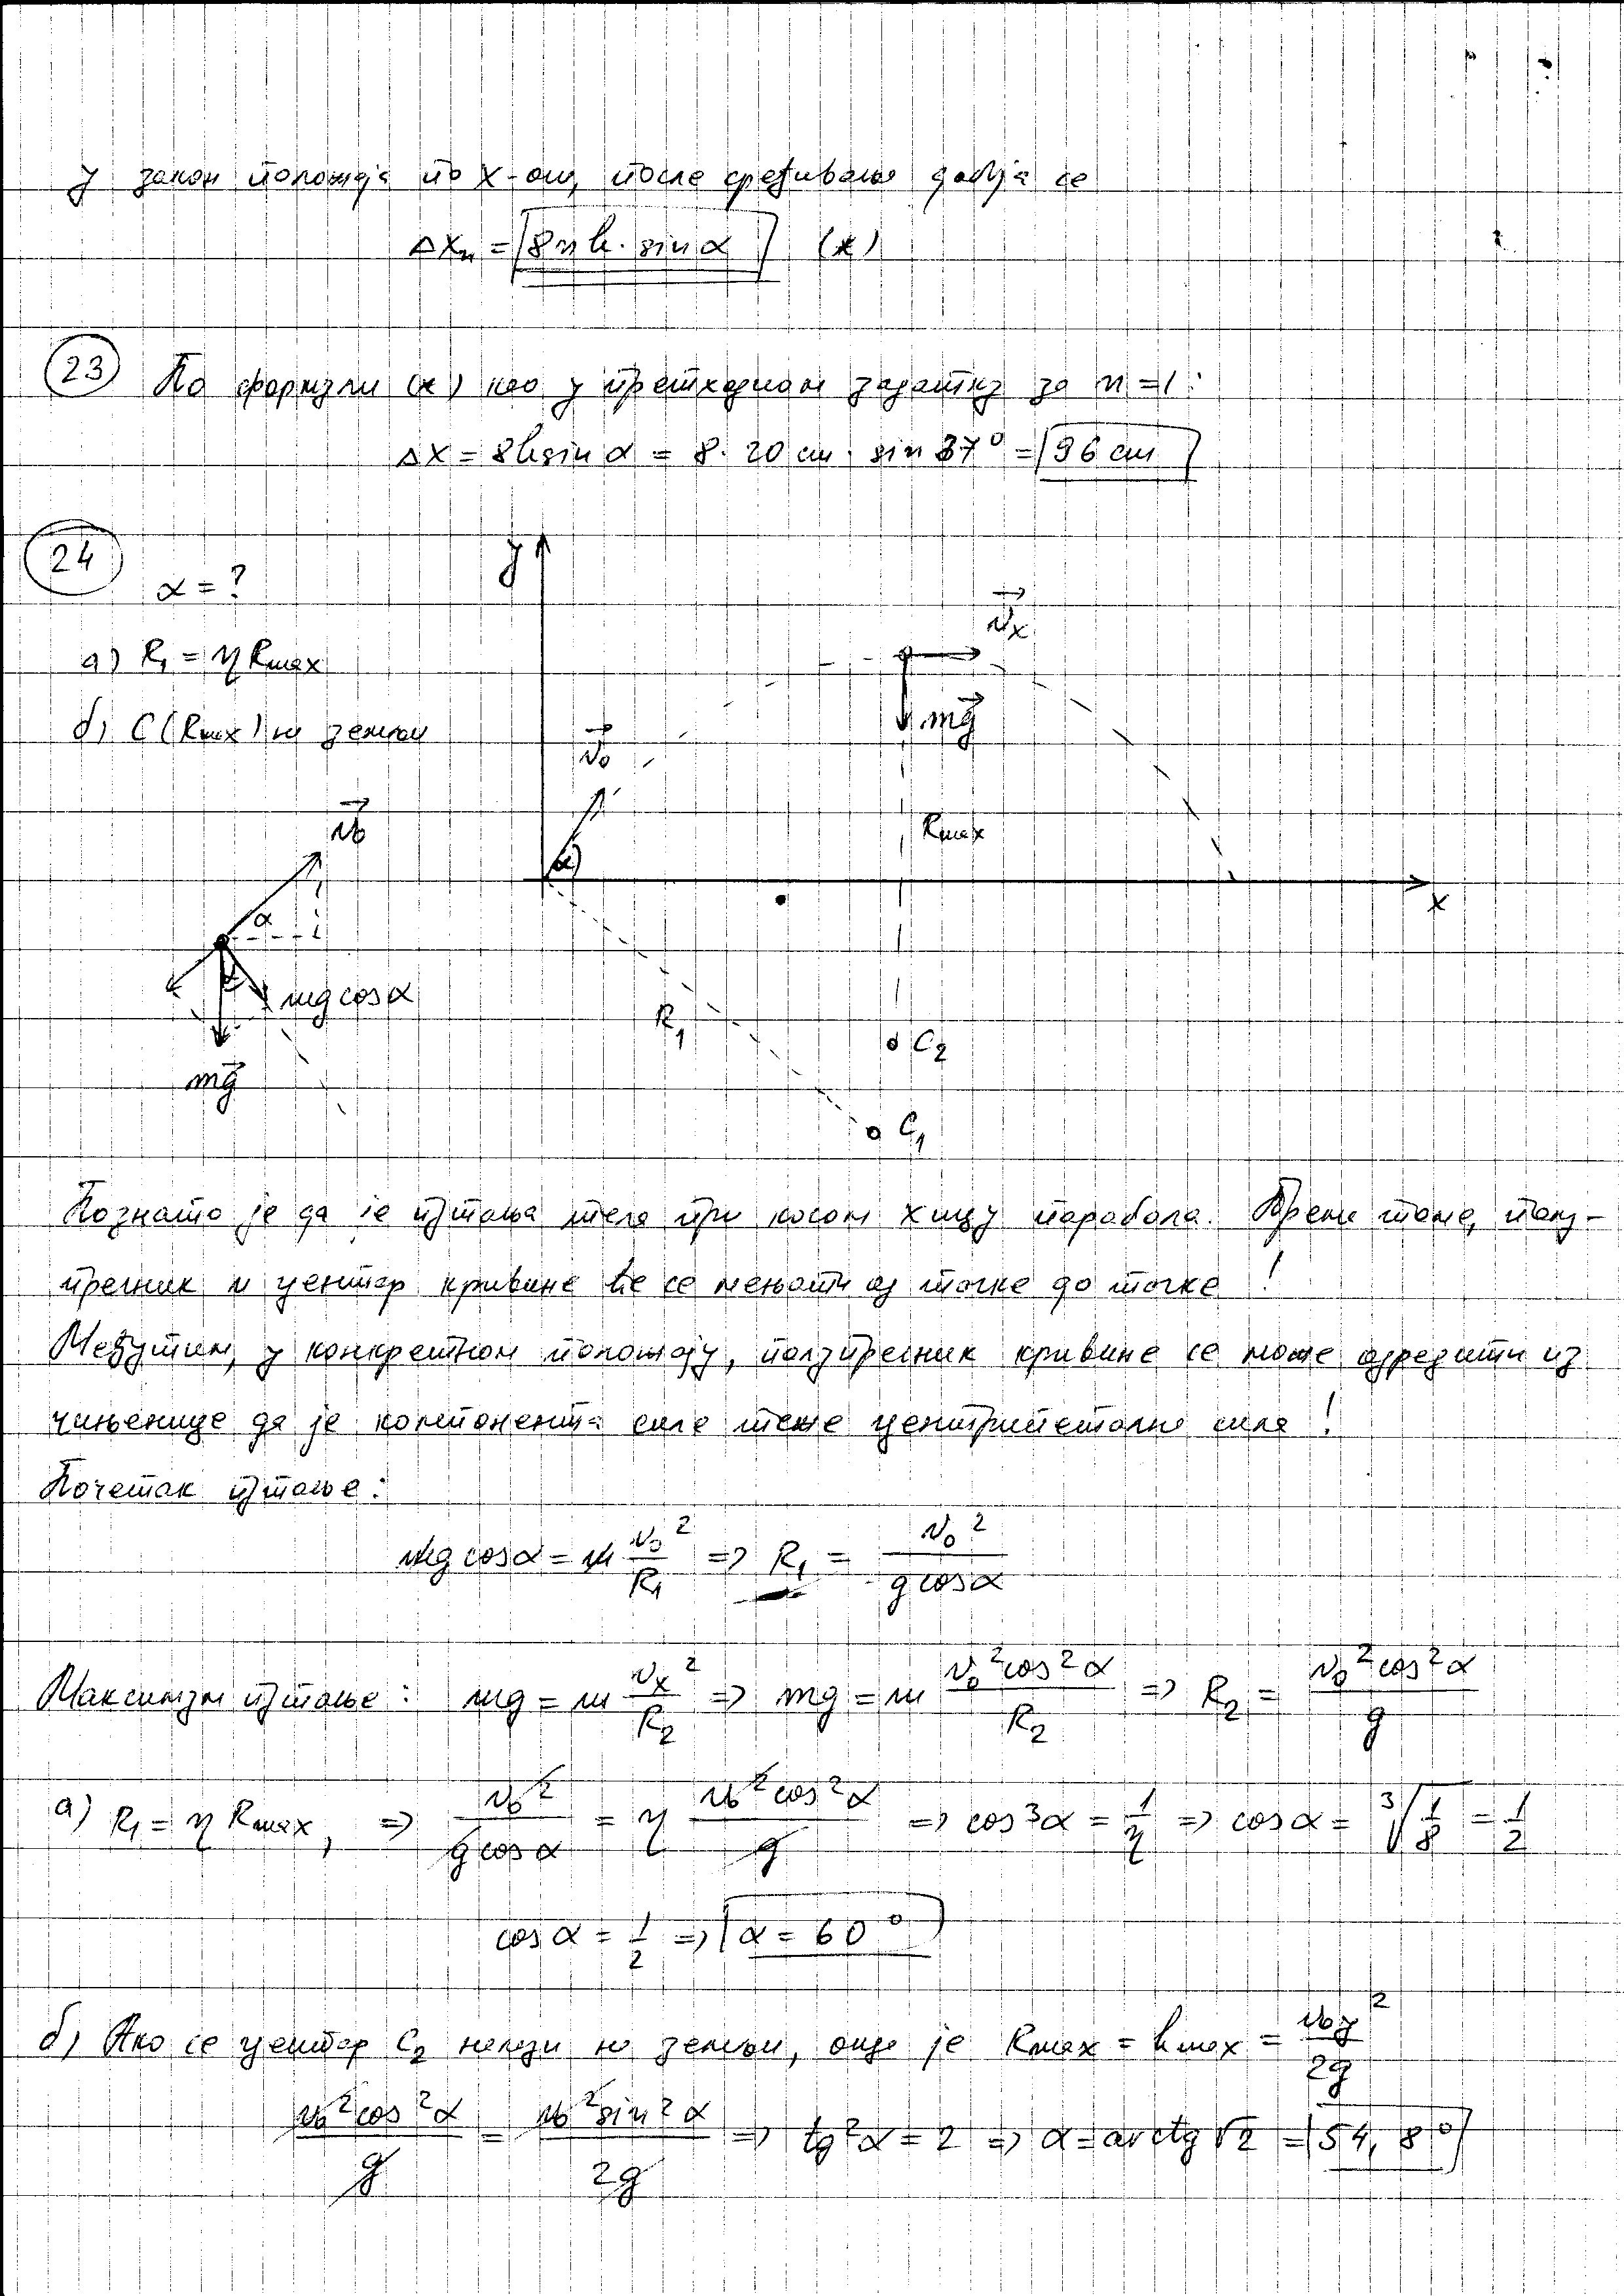 У закон положаја по x-оси, после сређивања добија се
Δxₙ = 8nh · sin α (*)
23 По формули (*) као у претходном задатку за n = 1:
Δx = 8h sin α = 8 · 20 cm · sin 37° = 96 cm
24
α = ?
а) R₁ = η Rmax
б) C (Rmax) на земљи
y
v⃗ₓ
mg⃗
v⃗₀
α
Rmax
x
v⃗₀
α
α
mg cos α
mg⃗
R₁
C₂
C₁
Познато је да је путања тела при косом хицу парабола. Према томе, полу-
пречник и центар кривине ће се мењати од тачке до тачке !
Међутим, у конкретном положају, полупречник кривине се може одредити из
чињенице да је компонента силе теже центрипетална сила !
Почетак путање:
mg cos α = m v₀²/R₁ => R₁ = v₀²/(g cos α)
Максимум путање: mg = m vₓ²/R₂ => mg = m v₀² cos² α/R₂ => R₂ = v₀² cos² α/g
а) R₁ = η Rmax, => v₀²/(g cos α) = η v₀² cos² α/g => cos³ α = 1/η => cos α = ³√(1/8) = 1/2
cos α = 1/2 => α = 60°
б) Ако се центар C₂ налази на земљи, онда је Rmax = hmax = v₀y²/2g
v₀² cos² α/g = v₀² sin² α/2g => tg² α = 2 => α = arctg √2 = 54,8°